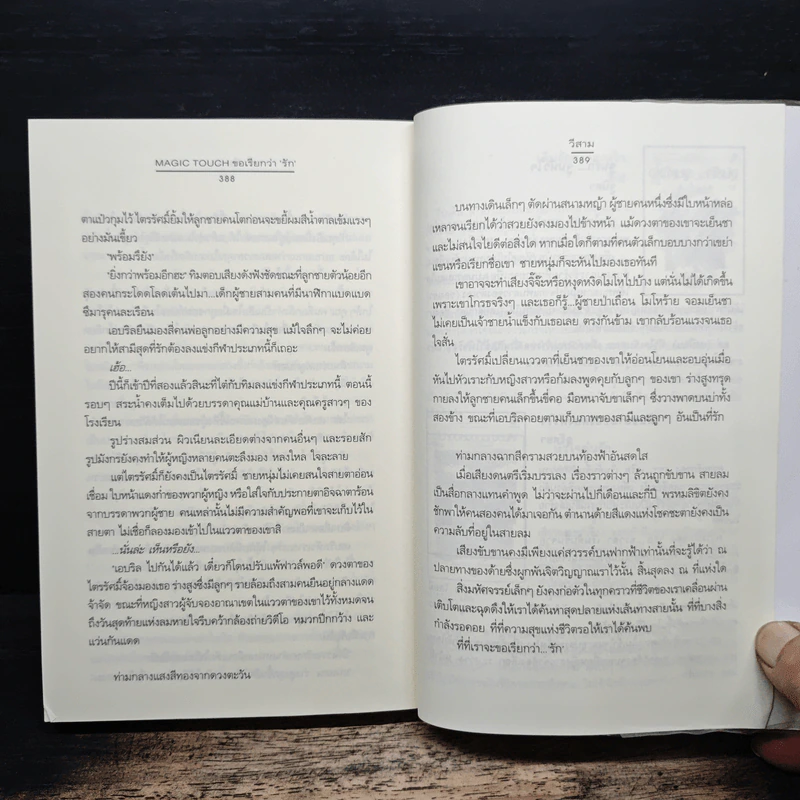 MAGIC TOUCH ขอเรียกว่า 'รัก'
388
ตาแป๋วกุมไว้ ไตรรัศมิ์ยิ้มให้ลูกชายคนโตก่อนจะขยี้ผมสีน้ำตาลเข้มแรงๆ
อย่างมันเขี้ยว
'พร้อมรึยัง'
'ยิ่งกว่าพร้อมอีกฮะ' ทิมตอบเสียงดังฟังชัดขณะที่ลูกชายตัวน้อยอีก
สองคนกระโดดโลดเต้นไปมา...เด็กผู้ชายสามคนที่มีนาฬิกาแบดแบดซี
มารุคนละเรือน
เอบริลยืนมองสี่คนพ่อลูกอย่างมีความสุข แม้ใจลึกๆ จะไม่ค่อย
อยากให้สามีสุดที่รักต้องลงแข่งกีฬาประเภทนี้ก็เถอะ
เฮ้อ...
ปีนี้ก็เข้าปีที่สองแล้วสินะที่ไต๋กับทิมลงแข่งกีฬาประเภทนี้ ตอนนี้
รอบๆ สระน้ำคงเต็มไปด้วยบรรดาคุณแม่บ้านและคุณครูสาวๆ ของ
โรงเรียน
รูปร่างสมส่วน ผิวเนียนละเอียดต่างจากคนอื่นๆ และรอยสัก
รูปมังกรยังคงทำให้ผู้หญิงหลายคนตะลึงมอง หลงใหล ใจละลาย
แต่ไตรรัศมิ์ก็ยังคงเป็นไตรรัศมิ์ ชายหนุ่มไม่เคยสนใจสายตาอ่อน
เชื่อม ใบหน้าแดงก่ำของพวกผู้หญิง หรือใส่ใจกับประกายตาอิจฉาตาร้อน
จากบรรดาพวกผู้ชาย คนเหล่านั้นไม่มีความสำคัญพอที่เขาจะเก็บไว้ใน
สายตา ไม่เชื่อก็ลองมองเข้าไปในแววตาของเขาสิ
...นั่นล่ะ เห็นหรือยัง...
'เอบริล ไปกันได้แล้ว เดี๋ยวก็โดนปรับแพ้ฟาวล์พอดี' ดวงตาของ
ไตรรัศมิ์จ้องมองเธอ ร่างสูงซึ่งมีลูกๆ รายล้อมถึงสามคนยืนอยู่กลางแดด
จ้าจัด ขณะที่หญิงสาวผู้จับจองอาณาเขตในแววตาของเขาไว้ทั้งหมดจน
ถึงวันสุดท้ายแห่งลมหายใจรีบคว้ากล้องถ่ายวิดีโอ หมวกปีกกว้าง และ
แว่นกันแดด
ท่ามกลางแสงสีทองจากดวงตะวัน
วีสาม
389
บนทางเดินเล็กๆ ตัดผ่านสนามหญ้า ผู้ชายคนหนึ่งซึ่งมีใบหน้าหล่อ
เหลาจนเรียกได้ว่าสวยยังคงมองไปข้างหน้า แม้ดวงตาของเขาจะเย็นชา
และไม่สนใจไยดีต่อสิ่งใด หากเมื่อใดก็ตามที่คนตัวเล็กบอบบางกว่าเขย่า
แขนหรือเรียกชื่อเขา ชายหนุ่มก็จะหันไปมองเธอทันที
เขาอาจจะทำเสียงจิ๊จ๊ะหรือหงุดหงิดโมโหไปบ้าง แต่นั่นไม่ได้เกิดขึ้น
เพราะเขาโกรธจริงๆ และเธอก็รู้...ผู้ชายป่าเถื่อน โมโหร้าย จอมเย็นชา
ไม่เคยเป็นเจ้าชายน้ำแข็งกับเธอเลย ตรงกันข้าม เขากลับร้อนแรงจนเธอ
ใจสั่น
ไตรรัศมิ์เปลี่ยนแววตาที่เย็นชาของเขาให้อ่อนโยนและอบอุ่นเมื่อ
หันไปหัวเราะกับหญิงสาวหรือก้มลงพูดคุยกับลูกๆ ของเขา ร่างสูงทรุด
กายลงให้ลูกชายคนเล็กขึ้นขี่คอ มือหนาจับขาเล็กๆ ซึ่งวางพาดบนบ่าทั้ง
สองข้าง ขณะที่เอบริลคอยตามเก็บภาพของสามีและลูกๆ อันเป็นที่รัก
ท่ามกลางฉากสีครามสวยบนท้องฟ้าอันสดใส
เมื่อเสียงดนตรีเริ่มบรรเลง เรื่องราวต่างๆ ล้วนถูกขับขาน สายลม
เป็นสื่อกลางแทนคำพูด ไม่ว่าจะผ่านไปกี่เดือนและกี่ปี พรหมลิขิตยังคง
ชักพาให้คนสองคนได้มาเจอกัน ตำนานด้ายสีแดงแห่งโชคชะตายังคงเป็น
ความลับที่อยู่ในสายลม
เสียงขับขานคงมีเพียงแค่สวรรค์บนฟากฟ้าเท่านั้นที่จะรู้ได้ว่า ณ
ปลายทางของด้ายซึ่งผูกพันจิตวิญญาณเราไว้นั้น สิ้นสุดลง ณ ที่แห่งใด
สิ่งมหัศจรรย์เล็กๆ ยังคงก่อตัวในทุกคราวที่ชีวิตของเราเคลื่อนผ่าน
เติบโตและฉุดดึงให้เราได้ค้นหาสุดปลายแห่งเส้นทางสายนั้น ที่ที่บางสิ่ง
กำลังรอคอย ที่ที่ความสุขแห่งชีวิตรอให้เราได้ค้นพบ
ที่ที่เราจะขอเรียกว่า...'รัก'